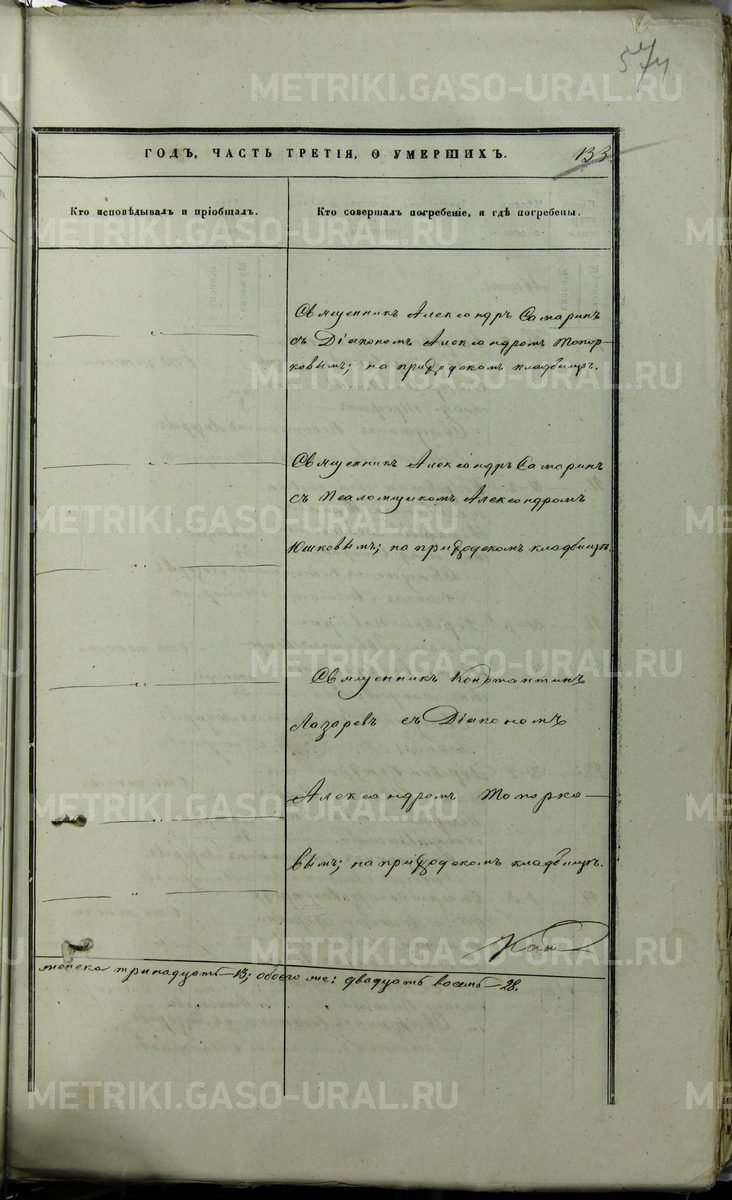 574
ГОДЪ, ЧАСТЬ ТРЕТІЯ, О УМЕРШИХЪ. 133
Кто исповѣдывалъ и пріобщалъ.
Кто совершалъ погребеніе, и гдѣ погребены.
Священникъ Александръ Самаринъ
съ Діакономъ Александромъ Топор-
ковымъ; на приходскомъ кладбищѣ.
Священникъ Александръ Самаринъ
съ Псаломщикомъ Александромъ
Юшковымъ; на приходскомъ кладбищѣ.
Священникъ Константинъ
Лазаревъ съ Діакономъ
Александромъ Топорко-
вымъ; на приходскомъ кладбищѣ.
женска тринадцать—13; обоего же: двадцать восемь—28.
METRIKI.GASO-URAL.RU